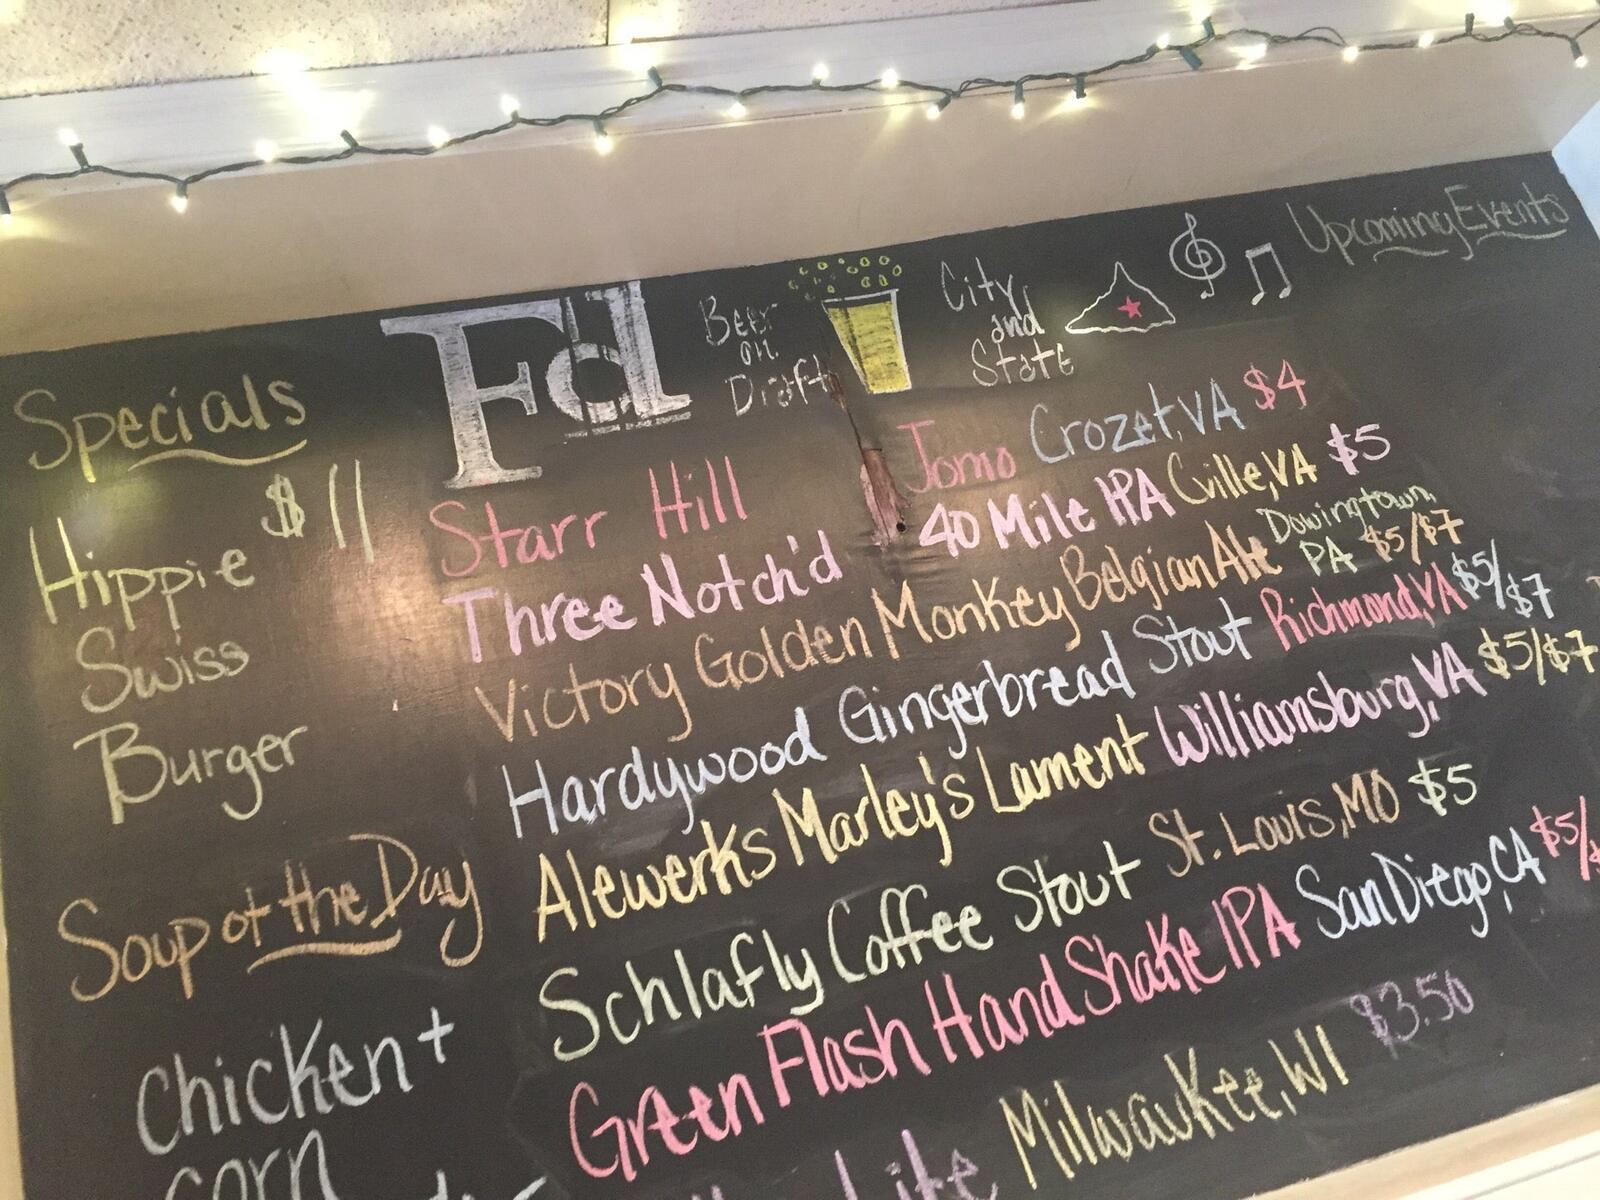 Specials
$11
Hippie
Swiss
Burger
Soup of the Day
Chicken +
corn
Fd
Beer
on
Draft
City
and
State
Upcoming Events
Starr Hill Jomo Crozet, VA $4
Three Notch'd 40 Mile IPA Cville, VA $5
Victory Golden Monkey Belgian Ale Dowingtown, PA $5/$7
Hardywood Gingerbread Stout Richmond, VA $5/$7
Alewerks Marley's Lament Williamsburg, VA $5/$7
Schlafly Coffee Stout St. Louis, MO $5
Green Flash Hand Shake IPA San Diego, CA $5/$
Lite Milwaukee, WI $3.50